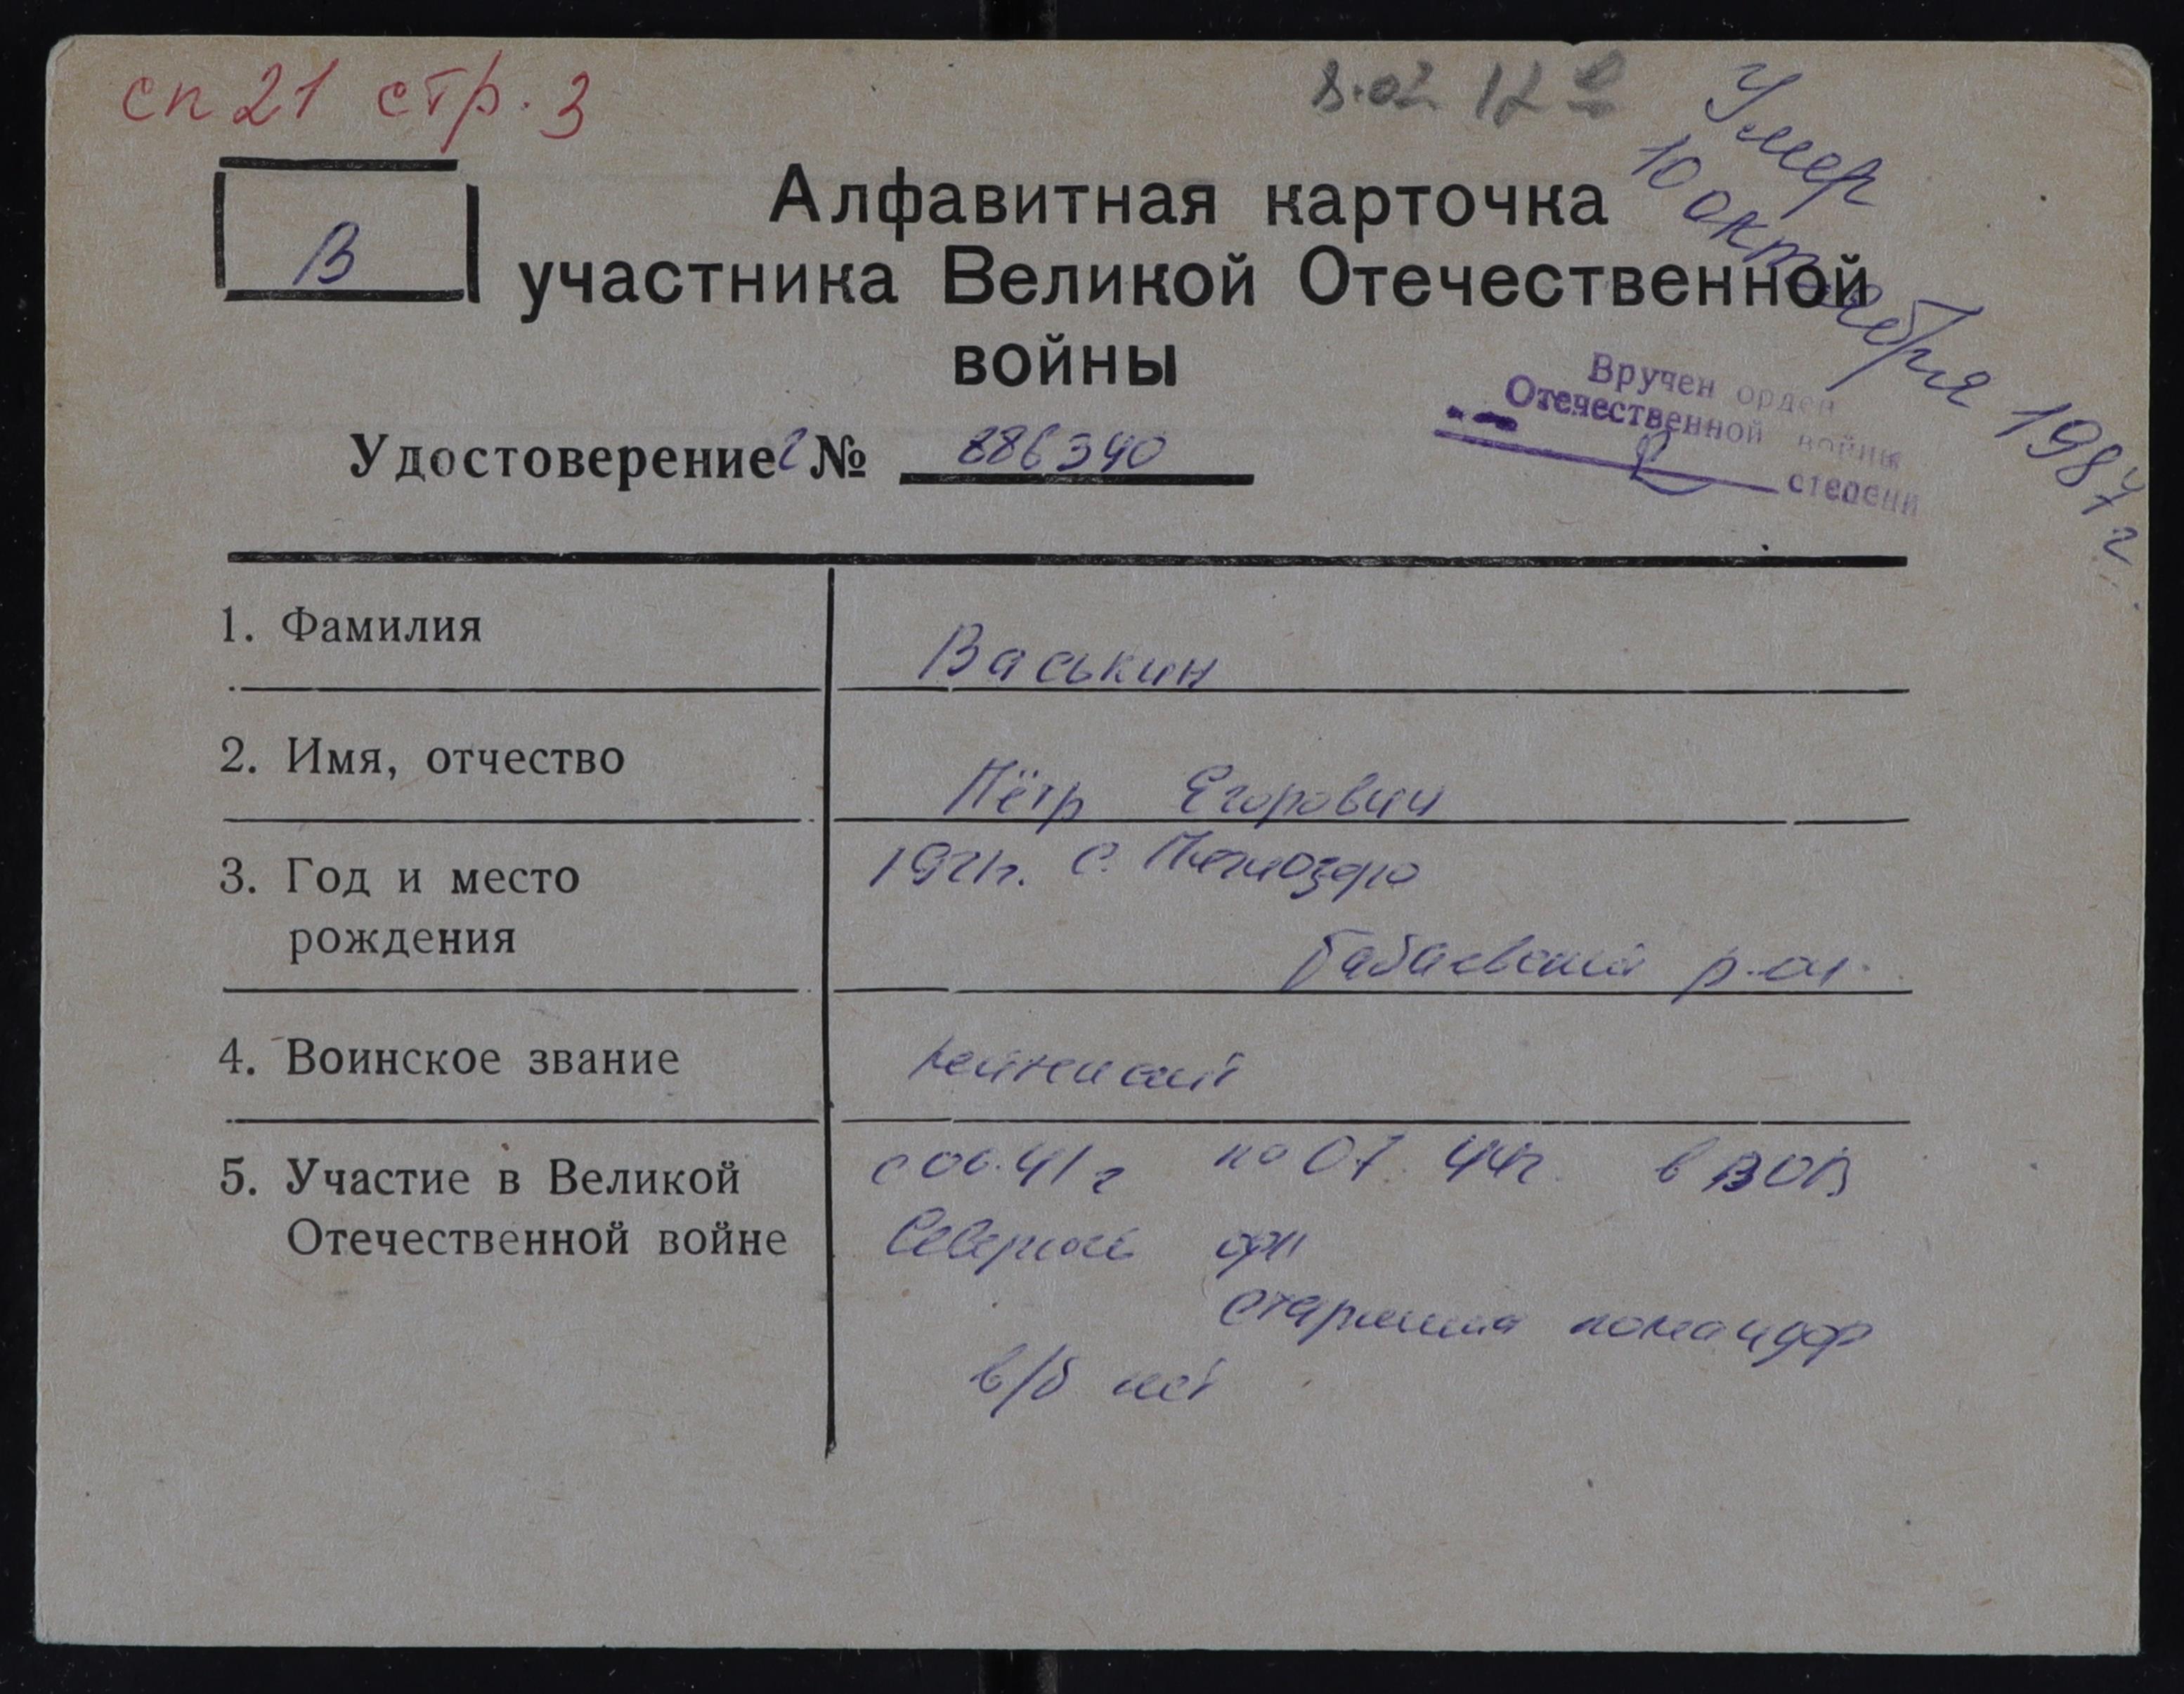 сп 21 стр. 3
8.02 12
Умер
10 октября 1987 г
В
Алфавитная карточка
участника Великой Отечественной
войны
Вручен орден
Отечественной войны
степени
Удостоверение г № 886340
1. Фамилия
Васькин
2. Имя, отчество
Пётр Егорович
3. Год и место
рождения
1921г. с.
Бабаевский р-он.
4. Воинское звание
лейтенант
5. Участие в Великой
Отечественной войне
с 06.41 г по 07.44г. в ВОВ
старшина командир
в/б нет